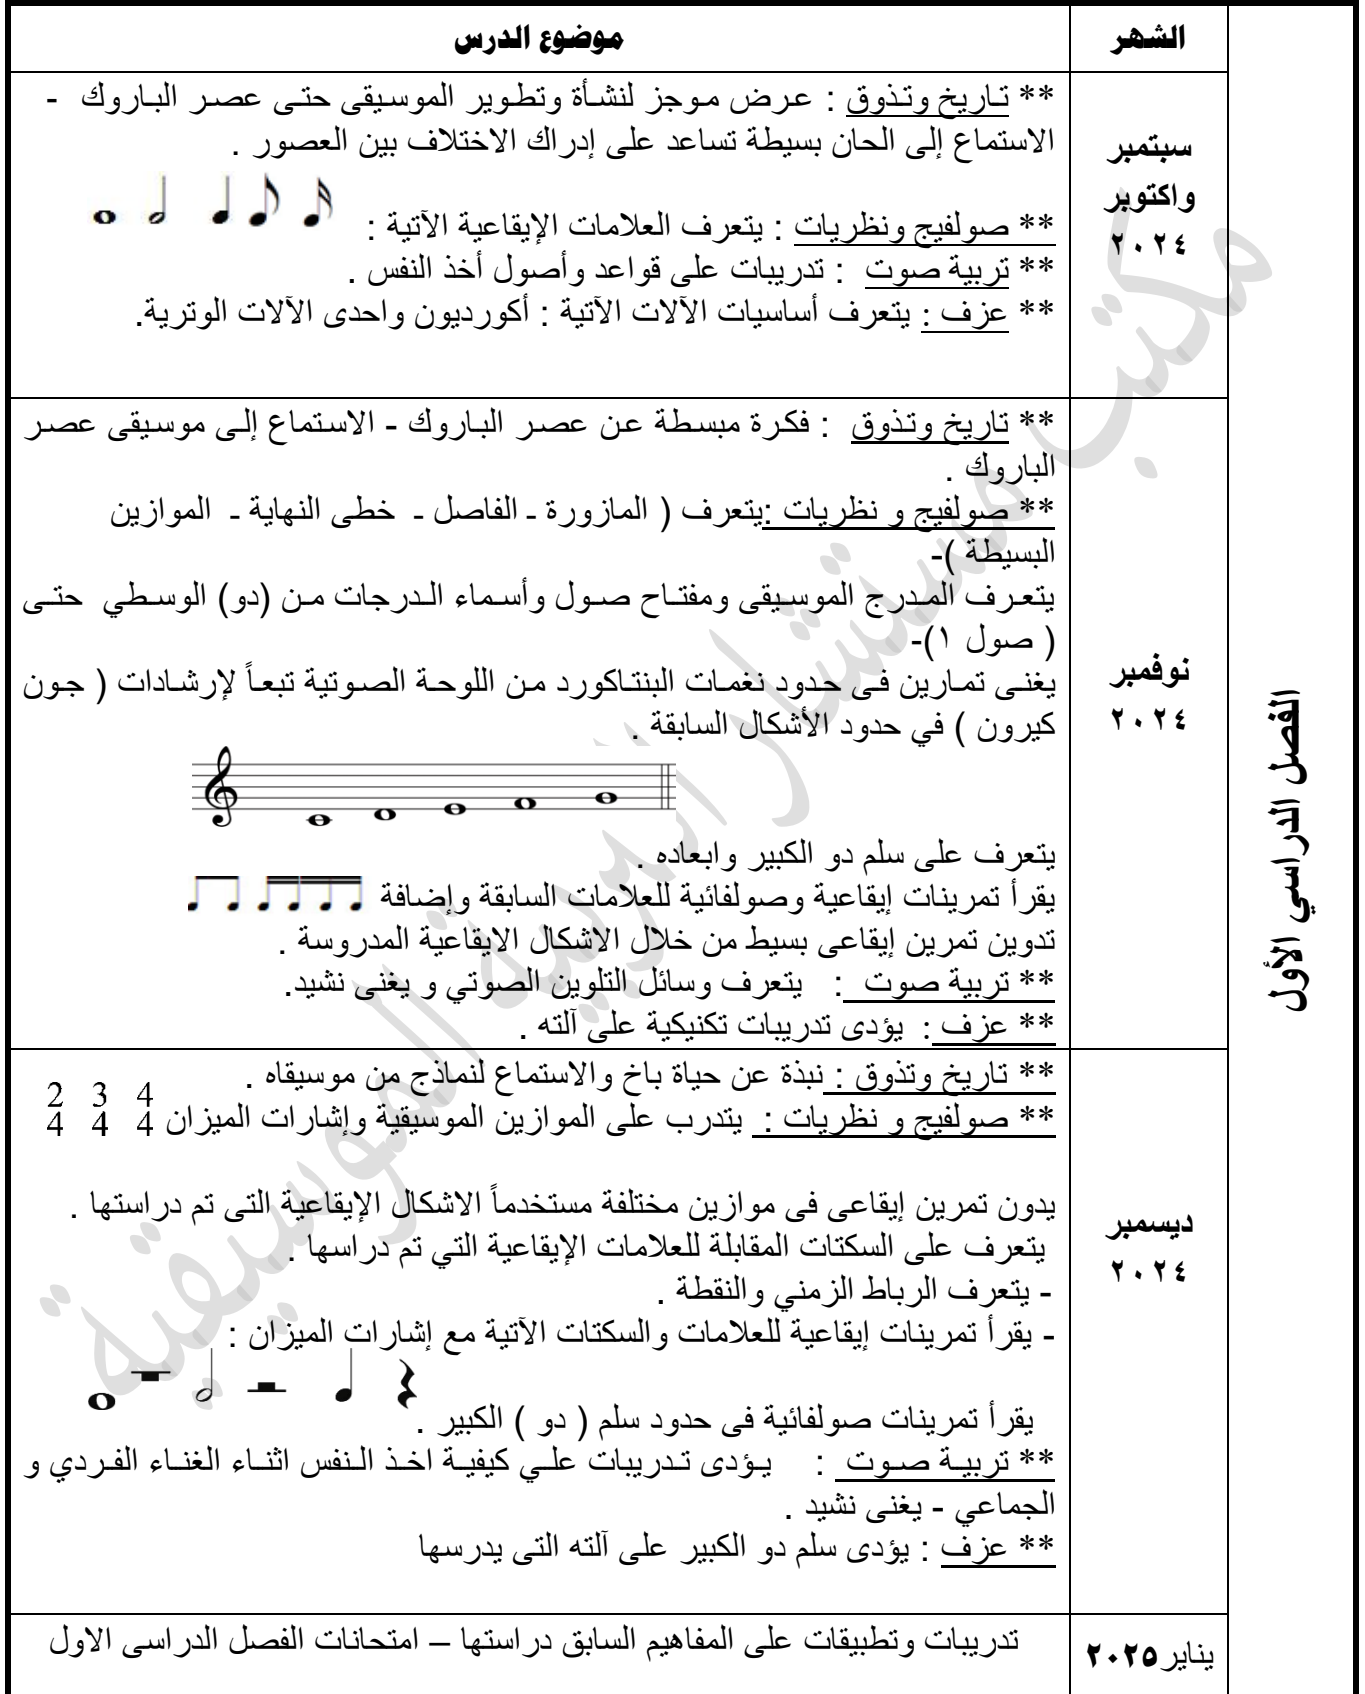 الشهر
موضوع الدرس
الفصل الدراسي الأول
سبتمبر
واكتوبر
٢٠٢٤
** تاريخ وتذوق : عرض موجز لنشأة وتطوير الموسيقى حتى عصر الباروك -
الاستماع إلى الحان بسيطة تساعد على إدراك الاختلاف بين العصور .
** صولفيج ونظريات : يتعرف العلامات الإيقاعية الآتية :
** تربية صوت : تدريبات على قواعد وأصول أخذ النفس .
** عزف : يتعرف أساسيات الآلات الآتية : أكورديون واحدى الآلات الوترية.
نوفمبر
٢٠٢٤
** تاريخ وتذوق : فكرة مبسطة عن عصر الباروك - الاستماع إلى موسيقى عصر
الباروك .
** صولفيج و نظريات :يتعرف ( المازورة ـ الفاصل ـ خطى النهاية ـ الموازين
البسيطة )-
يتعرف المدرج الموسيقى ومفتاح صول وأسماء الدرجات من (دو) الوسطي حتى
( صول ١)-
يغنى تمارين فى حدود نغمات البنتاكورد من اللوحة الصوتية تبعاً لإرشادات ( جون
كيرون ) في حدود الأشكال السابقة .
يتعرف على سلم دو الكبير وابعاده .
يقرأ تمرينات إيقاعية وصولفائية للعلامات السابقة وإضافة
تدوين تمرين إيقاعى بسيط من خلال الاشكال الايقاعية المدروسة .
** تربية صوت : يتعرف وسائل التلوين الصوتي و يغنى نشيد.
** عزف : يؤدى تدريبات تكنيكية على آلته .
ديسمبر
٢٠٢٤
** تاريخ وتذوق : نبذة عن حياة باخ والاستماع لنماذج من موسيقاه .
** صولفيج و نظريات : يتدرب على الموازين الموسيقية وإشارات الميزان 4/4 3/4 2/4
يدون تمرين إيقاعى فى موازين مختلفة مستخدماً الاشكال الإيقاعية التى تم دراستها .
يتعرف على السكتات المقابلة للعلامات الإيقاعية التي تم دراسها .
- يتعرف الرباط الزمني والنقطة .
- يقرأ تمرينات إيقاعية للعلامات والسكتات الآتية مع إشارات الميزان :
يقرأ تمرينات صولفائية فى حدود سلم ( دو ) الكبير .
** تربية صوت : يؤدى تدريبات علي كيفية اخذ النفس اثناء الغناء الفردي و
الجماعي - يغنى نشيد .
** عزف : يؤدى سلم دو الكبير على آلته التى يدرسها
يناير٢٠٢٥
تدريبات وتطبيقات على المفاهيم السابق دراستها – امتحانات الفصل الدراسى الاول
مكتب مستشار التربية الموسيقية